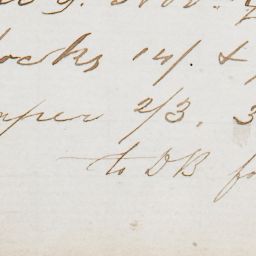 ocks 14/. &
aper 2/3. 3
to DB fo